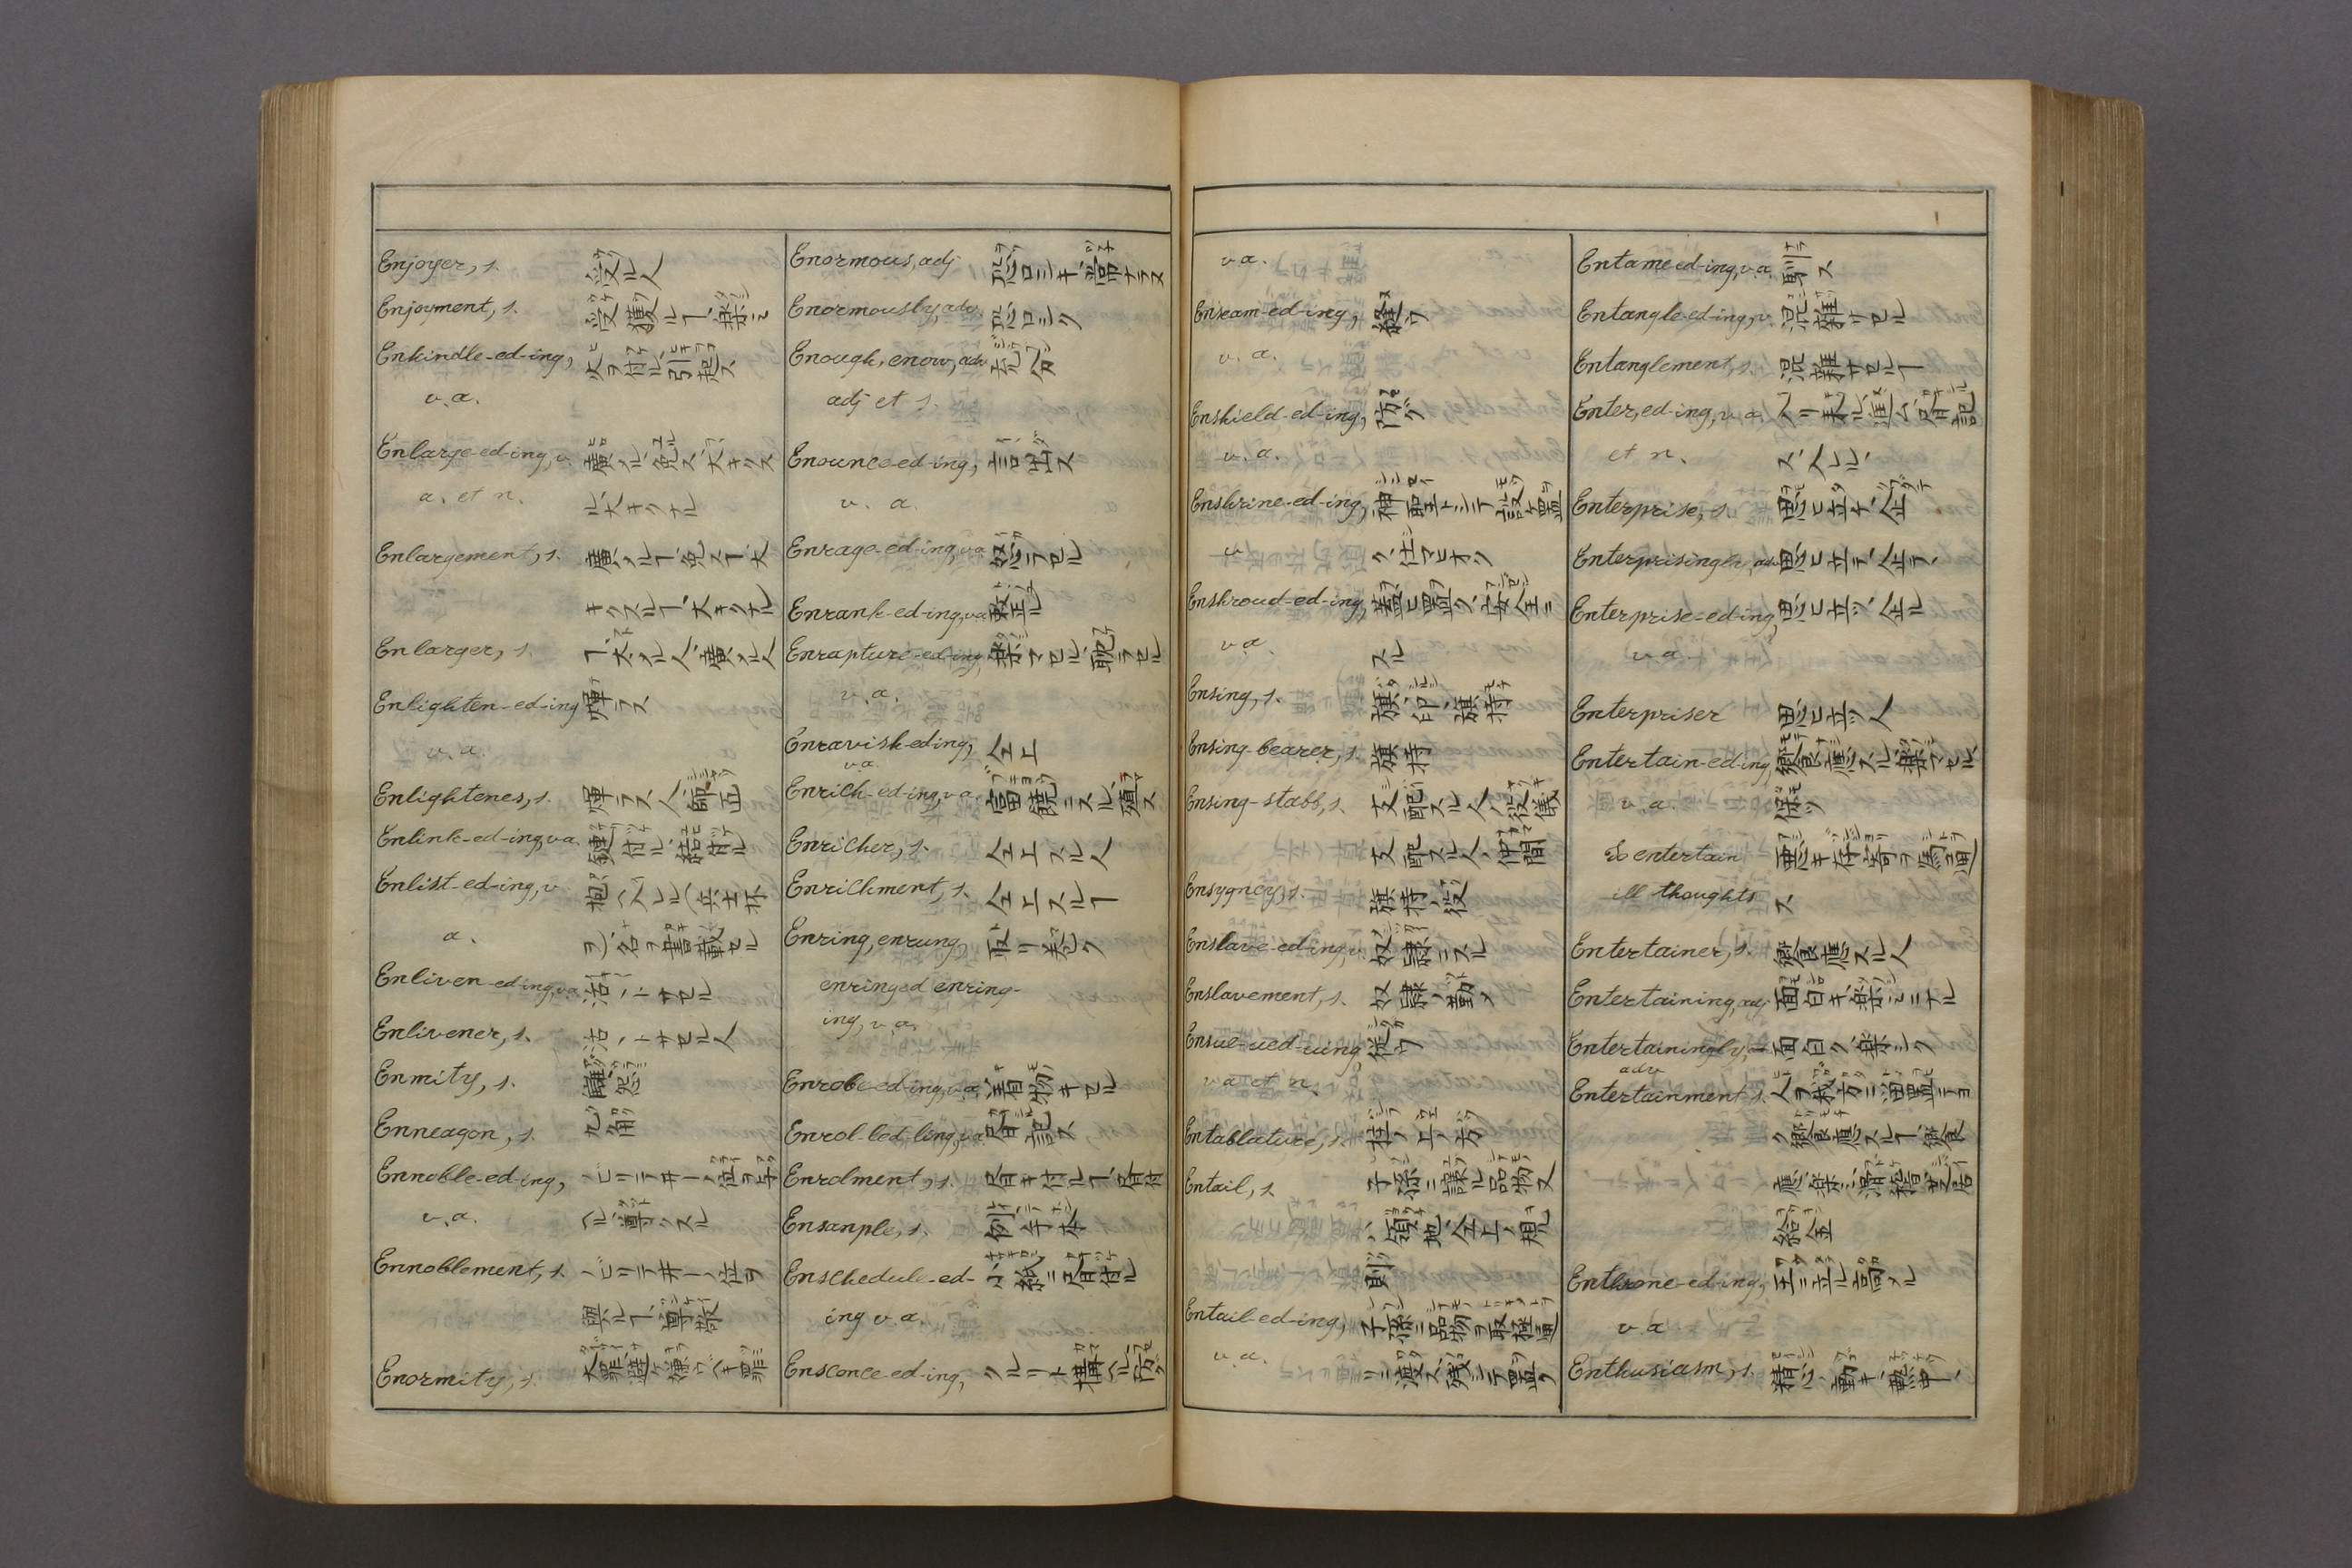 Enjoyer, s. 受ル人
Enjoyment, s. 受獲ルヿ、楽シミ
Enkindle-ed-ing, 火ヲ付ル、引起ス
v.a.
Enlarge-ed-ing, v. 廣メル、免ス、大キクス
a. et n. ル、大キクナル
Enlargement, s. 廣メルヿ、免スヿ、大
キクスルヿ、大キクナル
Enlarger, s. ヿ、太メル人、廣メル人
Enlighten-ed-ing 輝ラス
v.a.
Enlightenes, s. 輝ラス人、師匠
Enlink-ed-ing, v.a. 鏈付ル、結付ル
Enlist-ed-ing, v. 抱ヘ入レル(兵士抔
a. ヲ)、名ヲ書載セル
Enliven-ed-ing, v.a. 活々トサセル
Enlivener, s. 活々トサセル人
Enmity, s. 讎怨
Enneagon, s. 九角
Ennoble-ed-ing, ノビリテ井ーノ位ヲ与
v.a. ヘル、尊クスル
Ennoblement, s. ノビリテ井ーノ位ヲ
與ルヿ、尊敬
Enormity, s. 大罪
Enormous, adj 恐ロシキ、常ナラス
Enormously, adv. 恐ロシク
Enough, enow, adv. 充分
adj et s.
Enounce-ed-ing, 言出ス
v. a.
Enrage-ed-ing, v.a. 怒ラセル
Enrank-ed-ing, v.a.
Enrapture-ed-ing, 楽マセル、耽ラセル
v.a.
Enravish-ed-ing, 仝上
v.a.
Enrich-ed-ing, v.a. 富饒ニスル、殖ス
Enricher, s. 仝上スル人
Enrichment, s. 仝上スルヿ
Enring, enrung, 取リ巻ク
enringed enring-
ing, v.a.
Enrobe-ed-ing, v.a. 着物キセル
Enrol-led-ling, v.a. 書記ス
Enrolment, s. 書キ付ルヿ、書付
Ensanple, s. 例、手本
Enschedule-ed- 小紙ニ書付ル
ing v.a.
Ensconce-ed-ing, クルリト構ヘル、防ク
v.a.
Enseam-ed-ing, 縫フ
v. a.
Enshield-ed-ing, 防グ
v.a.
Enshrine-ed-ing, 神聖トシテ設ケ置
v ク、仕マヒオク
Enshroud-ed-ing, 蓋ヒ置ク、安全ニ
v.a. スル
Ensing, s. 旗、印、旗持
Ensing-bearer, s. 旗持
Ensing-stabb, s. 支配スル人ノ役儀
支配スル人ノ仲間
Ensygncy, s. 旗持ノ役
Enslave-ed-ing, v. 奴隷ニスル
Enslavement, s. 奴隷ノ勤メ
Ensue-ued-uing 従フ
v.a et n.
Entablature, s. 柱ノ上ノ方
Entail, s. 子孫ニ譲ル品物又
ハ領地、仝上ノ規
則
Entail-ed-ing, 子孫ニ品物ヲ取極通
v.a. リニ渡ス、残シテ置ク
Entame-ed-ing, v.a. 馴ラス
Entangle-ed-ing, v. 混雑サセル
Entanglement, s. 混雑サセルヿ
Enter, ed-ing, v.a. 入リ来ル、進ム、書記
et n. ス、入レル、
Enterprise, s. 思ヒ立チ、企
Enterprisingly, adv. 思ヒ立テ、企テ、
Enterprise-ed-ing, 思ヒ立ツ、企ル
v.a.
Enterpriser 思ヒ立ツ人
Entertain-ed-ing, 饗應スル、樂マセル
v.a. 保ツ
To entertain 悪キ存寄ヲ為通
ill thoughts ス
Entertainer, s. 饗應スル人
Entertaining, adj. 面白キ、楽シミニナル
Entertainingly, 面白ク、楽シク
adv
Entertainment s. 人ヲ我方ニ泊置テヨ
ク饗應スルヿ、饗
應、楽ミ、滑稽芝居
給金
Enthrone-ed-ing, 王ニ立ル、高メル
v.a
Enthusiasm, s. 精心ノ動キ、熱中、